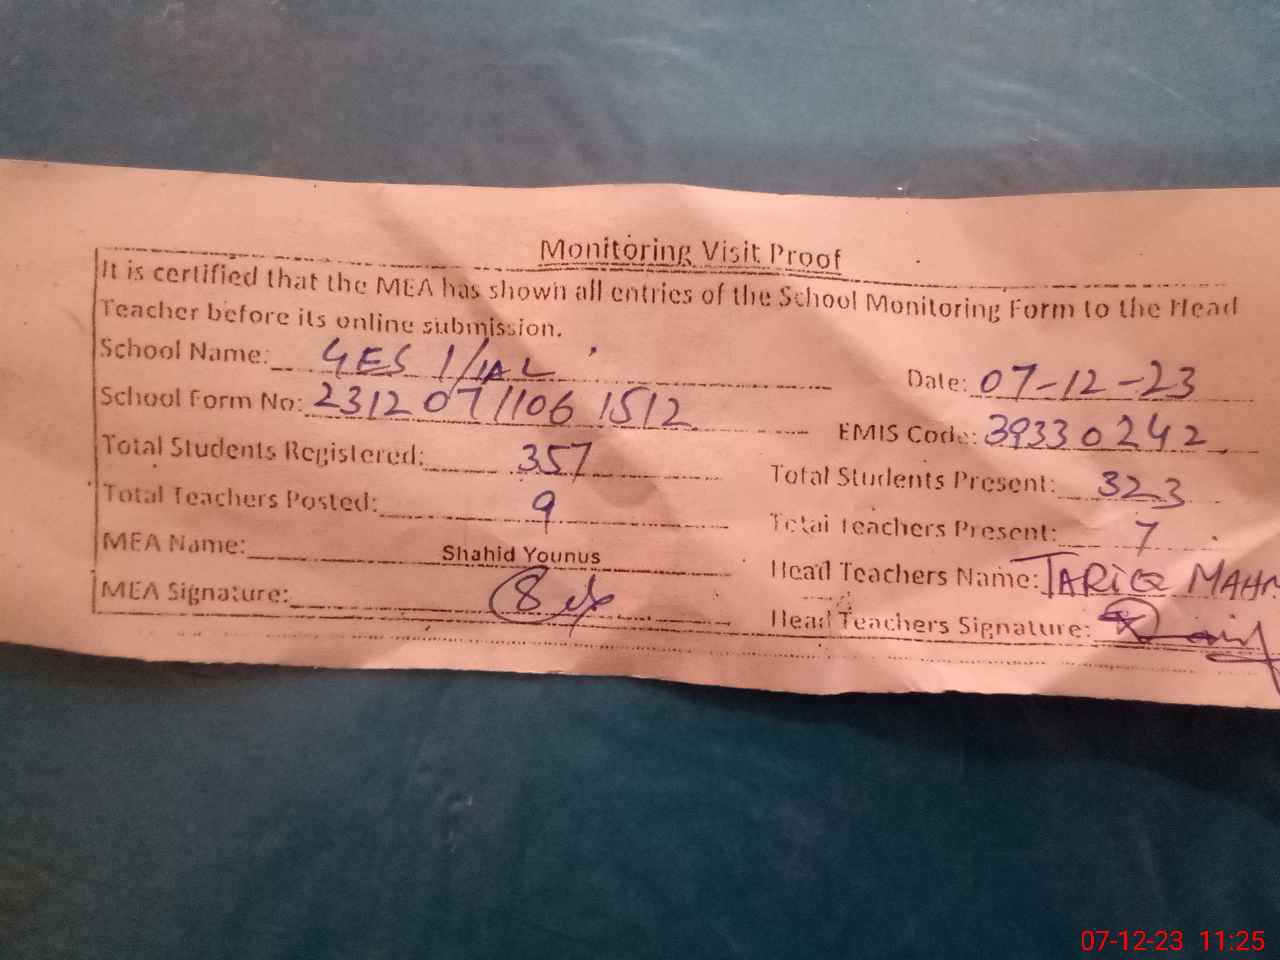 Monitoring Visit Proof
It is certified that the MEA has shown all entries of the School Monitoring Form to the Head
Teacher before its online submission.
School Name: GES 1/1AL Date: 07-12-23
School Form No: 2312071106 1512 EMIS Code: 39330242
Total Students Registered: 357 Total Students Present: 323
Total Teachers Posted: 9 Total Teachers Present: 7
MEA Name: Shahid Younus Head Teachers Name: TARIQ MAHM
MEA Signature: Head Teachers Signature:
07-12-23 11:25